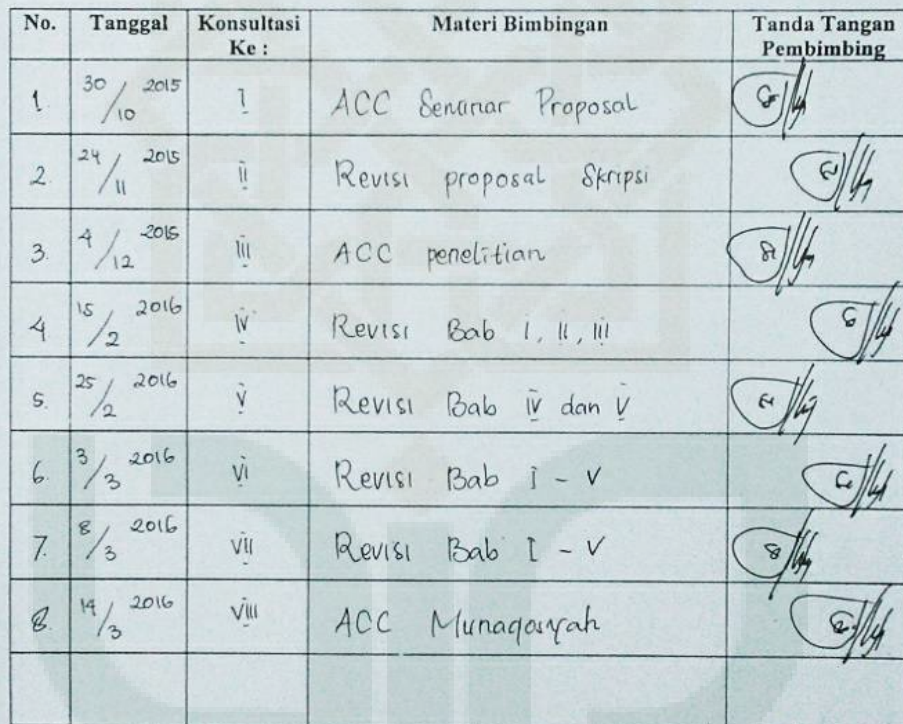 No. Tanggal Konsultasi Ke : Materi Bimbingan Tanda Tangan Pembimbing
1. 30/10 2015 I ACC Seminar Proposal
2. 24/11 2015 II Revisi proposal Skripsi
3. 4/12 2015 III ACC penelitian
4. 15/2 2016 IV Revisi Bab I, II, III
5. 25/2 2016 V Revisi Bab IV dan V
6. 3/3 2016 VI Revisi Bab I - V
7. 8/3 2016 VII Revisi Bab I - V
8. 14/3 2016 VIII ACC Munaqosyah